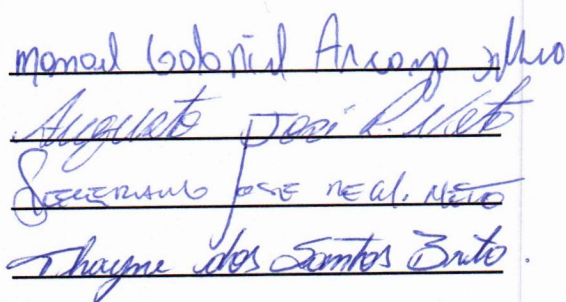 Manoel Gabriel Arcanjo Filho
Augusto José R. Neto
Severiano José Neto
Thayne dos Santos Brito.